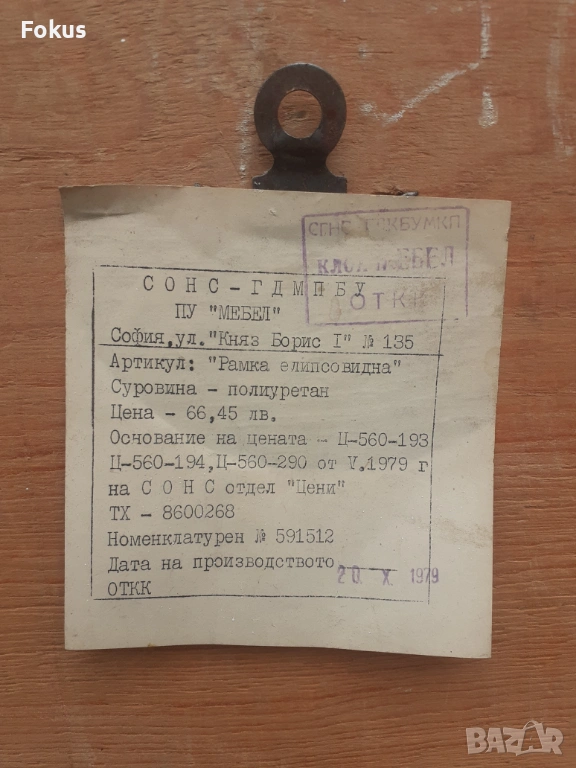 Fokus
СГНС
КЛОН МЕБЕЛ
ОТКК
С О Н С - Г Д М П Б У
ПУ "МЕБЕЛ"
София,ул."Княз Борис I" № 135
Артикул: "Рамка елипсовидна"
Суровина - полиуретан
Цена - 66,45 лв.
Основание на цената - Ц-560-193
Ц-560-194,Ц-560-290 от V.1979 г
на С О Н С отдел "Цени"
ТХ - 8600268
Номенклатурен № 591512
Дата на производството 20. X 1979
ОТКК
BAZAR